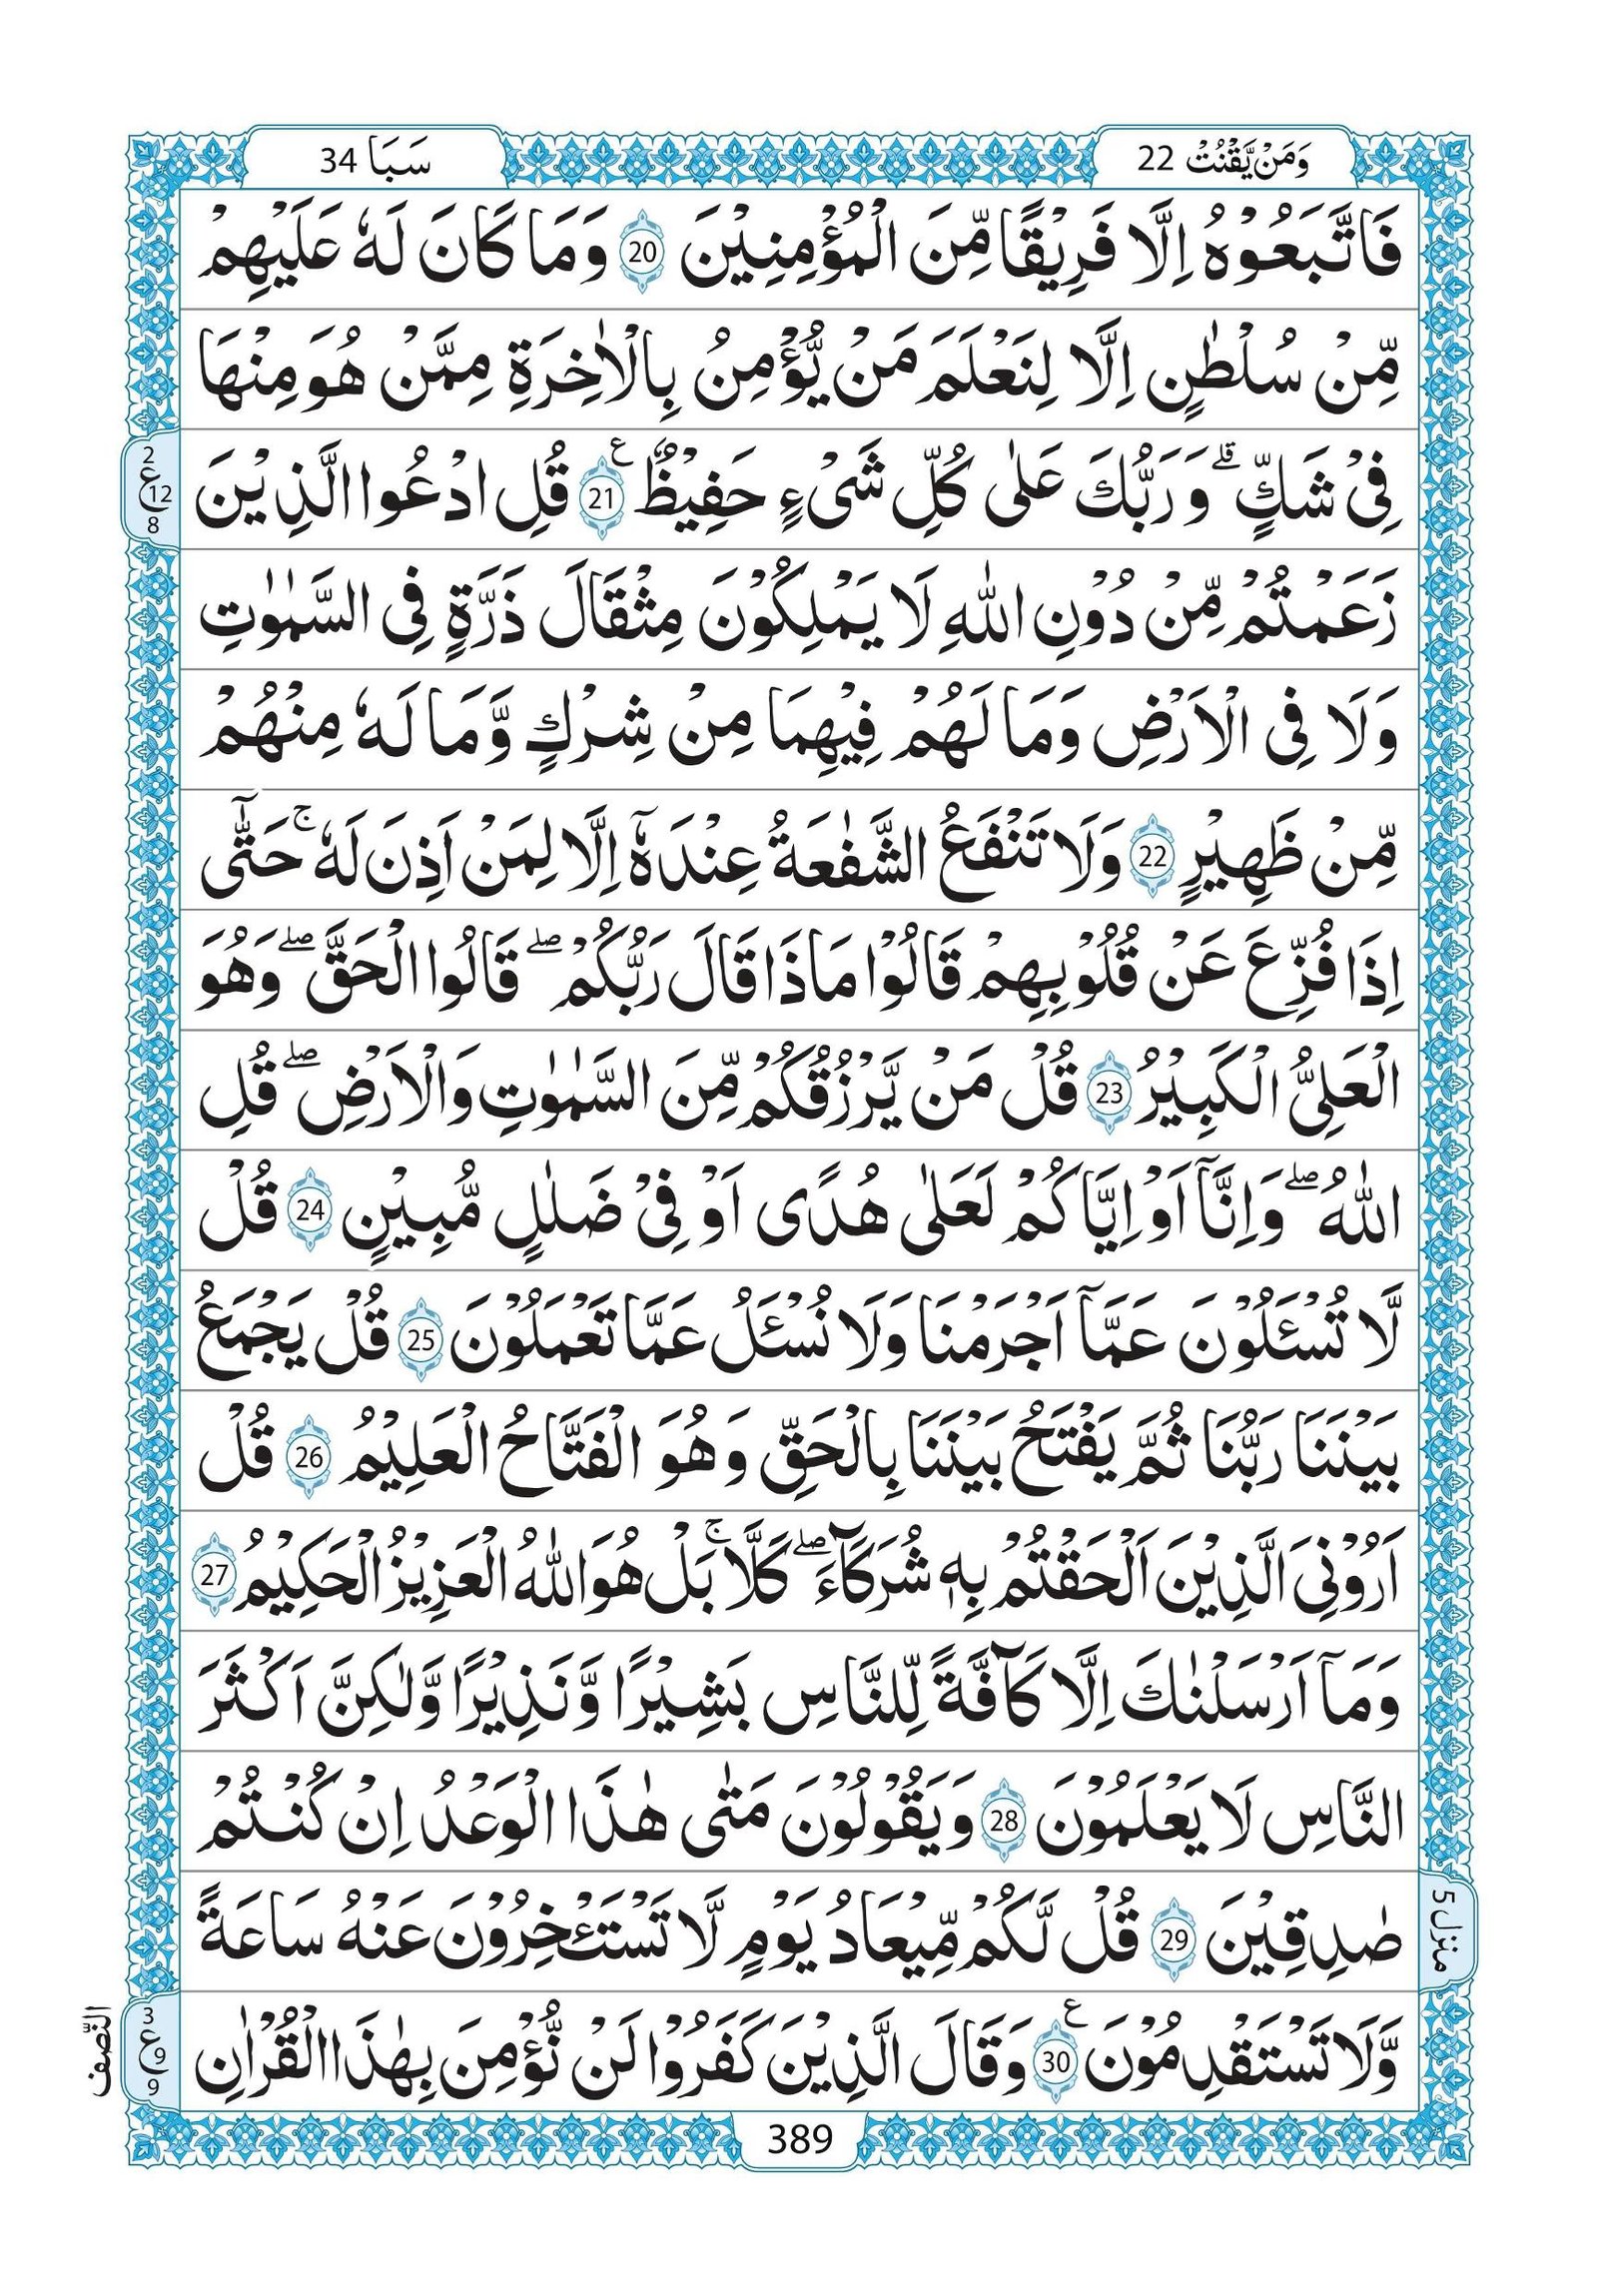 وَمَنْ يَّقْنُتْ 22
سَبَا 34
فَاتَّبَعُوْهُ اِلَّا فَرِيْقًا مِّنَ الْمُؤْمِنِيْنَ 20 وَمَا كَانَ لَهٗ عَلَيْهِمْ
مِّنْ سُلْطٰنٍ اِلَّا لِنَعْلَمَ مَنْ يُّؤْمِنُ بِالْاٰخِرَةِ مِمَّنْ هُوَ مِنْهَا
فِيْ شَكٍّ ۗ وَرَبُّكَ عَلٰى كُلِّ شَيْءٍ حَفِيْظٌ 21 ع قُلِ ادْعُوا الَّذِيْنَ
2 ع 12 8
زَعَمْتُمْ مِّنْ دُوْنِ اللّٰهِ لَا يَمْلِكُوْنَ مِثْقَالَ ذَرَّةٍ فِى السَّمٰوٰتِ
وَلَا فِى الْاَرْضِ وَمَا لَهُمْ فِيْهِمَا مِنْ شِرْكٍ وَّمَا لَهٗ مِنْهُمْ
مِّنْ ظَهِيْرٍ 22 وَلَا تَنْفَعُ الشَّفٰعَةُ عِنْدَهٗٓ اِلَّا لِمَنْ اَذِنَ لَهٗ ۚ حَتّٰٓى
اِذَا فُزِّعَ عَنْ قُلُوْبِهِمْ قَالُوْا مَاذَا قَالَ رَبُّكُمْ ۖ قَالُوا الْحَقَّ ۖ وَهُوَ
الْعَلِيُّ الْكَبِيْرُ 23 قُلْ مَنْ يَّرْزُقُكُمْ مِّنَ السَّمٰوٰتِ وَالْاَرْضِ ۖ قُلِ
اللّٰهُ ۖ وَاِنَّآ اَوْ اِيَّاكُمْ لَعَلٰى هُدًى اَوْ فِيْ ضَلٰلٍ مُّبِيْنٍ 24 قُلْ
لَّا تُسْـَٔلُوْنَ عَمَّآ اَجْرَمْنَا وَلَا نُسْـَٔلُ عَمَّا تَعْمَلُوْنَ 25 قُلْ يَجْمَعُ
بَيْنَنَا رَبُّنَا ثُمَّ يَفْتَحُ بَيْنَنَا بِالْحَقِّ وَهُوَ الْفَتَّاحُ الْعَلِيْمُ 26 قُلْ
اَرُوْنِيَ الَّذِيْنَ اَلْحَقْتُمْ بِهٖ شُرَكَآءَ ۖ كَلَّا ۚ بَلْ هُوَ اللّٰهُ الْعَزِيْزُ الْحَكِيْمُ 27
وَمَآ اَرْسَلْنٰكَ اِلَّا كَآفَّةً لِّلنَّاسِ بَشِيْرًا وَّنَذِيْرًا وَّلٰكِنَّ اَكْثَرَ
النَّاسِ لَا يَعْلَمُوْنَ 28 وَيَقُوْلُوْنَ مَتٰى هٰذَا الْوَعْدُ اِنْ كُنْتُمْ
صٰدِقِيْنَ 29 قُلْ لَّكُمْ مِّيْعَادُ يَوْمٍ لَّا تَسْتَـْٔخِرُوْنَ عَنْهُ سَاعَةً
منزل 5
وَّلَا تَسْتَقْدِمُوْنَ 30 ع وَقَالَ الَّذِيْنَ كَفَرُوْا لَنْ نُّؤْمِنَ بِهٰذَا الْقُرْاٰنِ
3 ع 9 9
النّصف
389